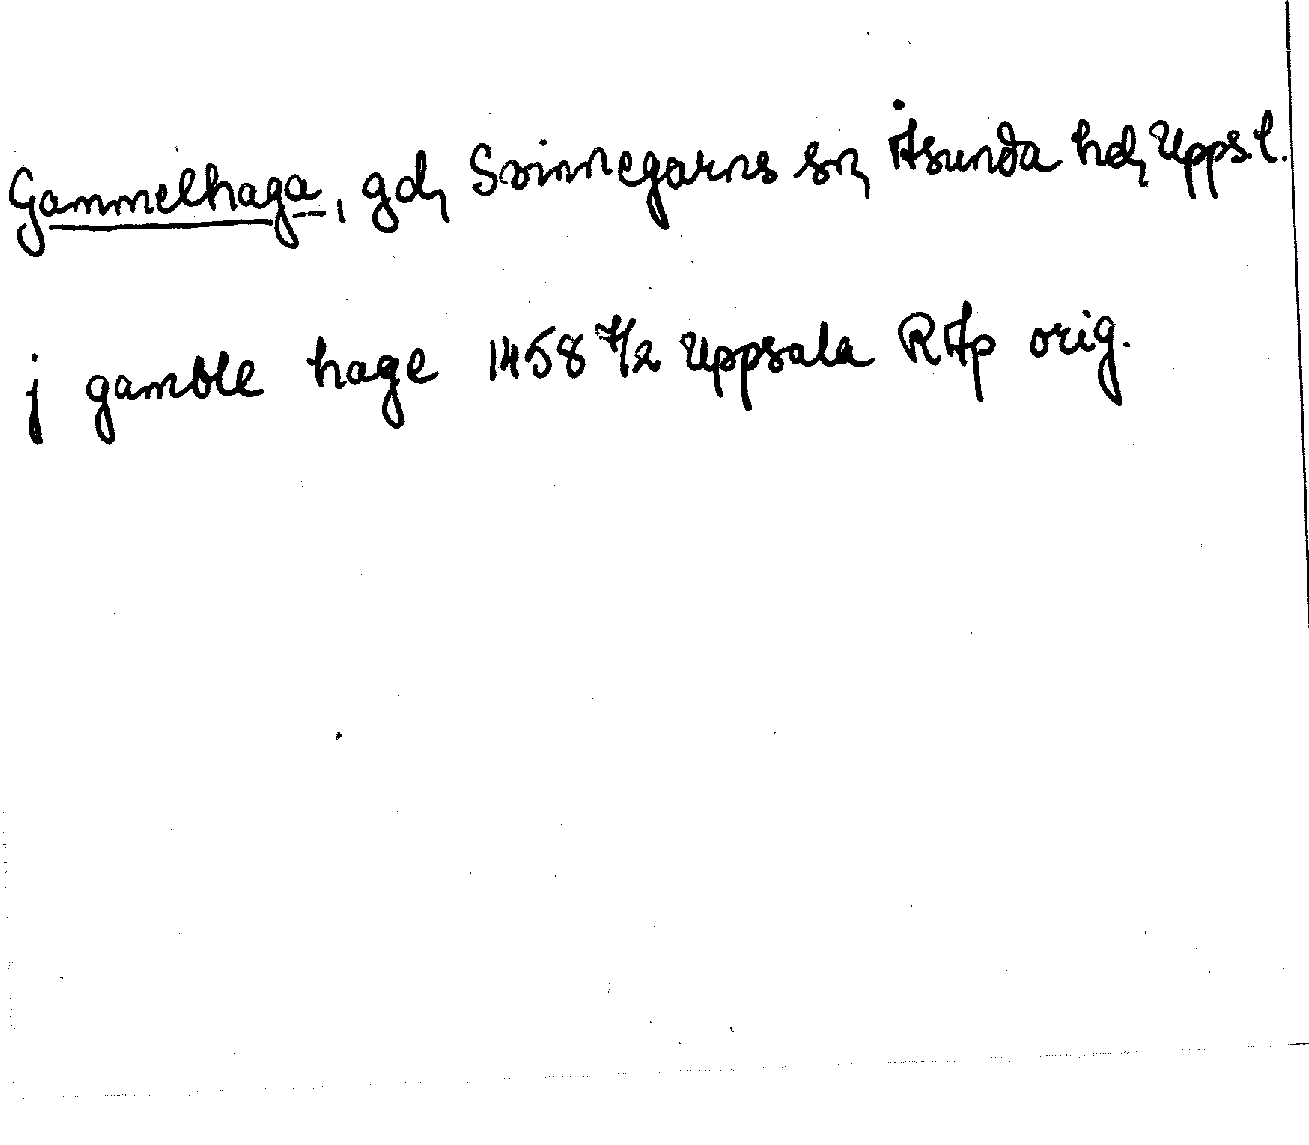 Gammelhaga, gd, Svinnegarns sn, Åsunda hd, Upps. l.
j gamble hage 1458 7/2 Uppsala RAp orig.